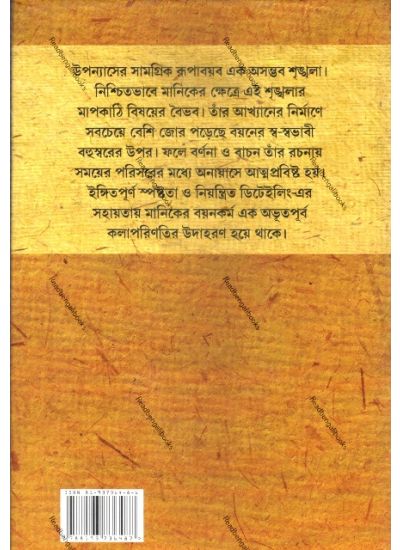 উপন্যাসের সামগ্রিক রূপাবয়ব এক অসম্ভব শৃঙ্খলা।
নিশ্চিতভাবে মানিকের ক্ষেত্রে এই শৃঙ্খলার
মাপকাঠি বিষয়ের বৈভব। তাঁর আখ্যানের নির্মাণে
সবচেয়ে বেশি জোর পড়েছে বয়নের স্ব-স্বভাবী
বহুস্বরের উপর। ফলে বর্ণনা ও বাচন তাঁর রচনায়
সময়ের পরিসরের মধ্যে অনায়াসে আত্মপ্রবিষ্ট হয়।
ইঙ্গিতপূর্ণ স্পষ্টতা ও নিয়ন্ত্রিত ডিটেইলিং-এর
সহায়তায় মানিকের বয়নকর্ম এক অভূতপূর্ব
কলাপরিণতির উদাহরণ হয়ে থাকে।
Readbengalibooks
ISBN